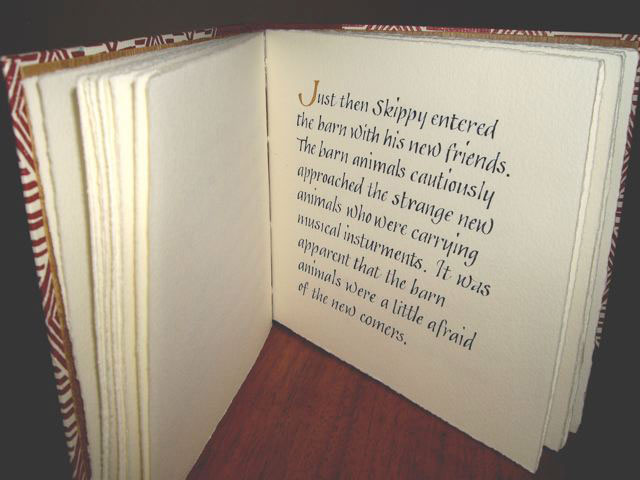 Just then Skippy entered
the barn with his new friends.
The barn animals cautiously
approached the strange new
animals who were carrying
musical insturments. It was
apparent that the barn
animals were a little afraid
of the new comers.